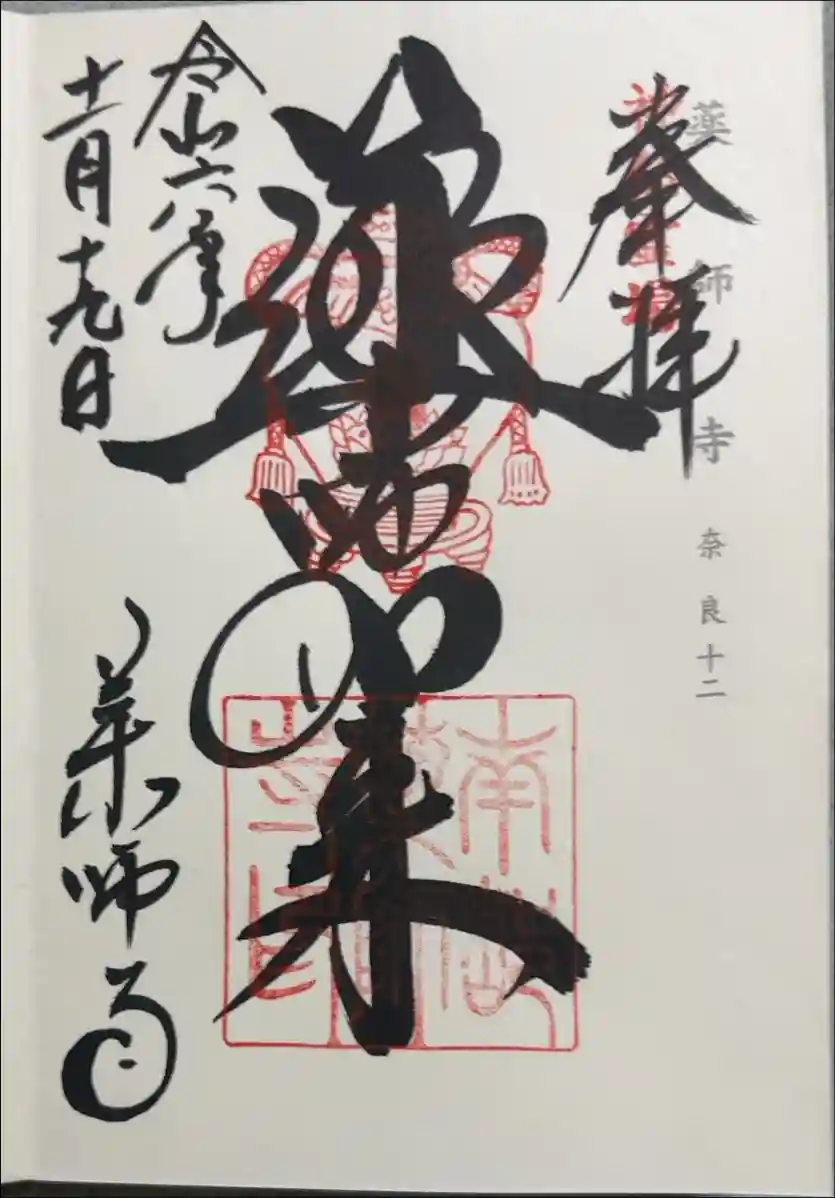 奉拝
薬師寺 奈良十二
薬師如来
令和六年
十一月十九日
薬師寺